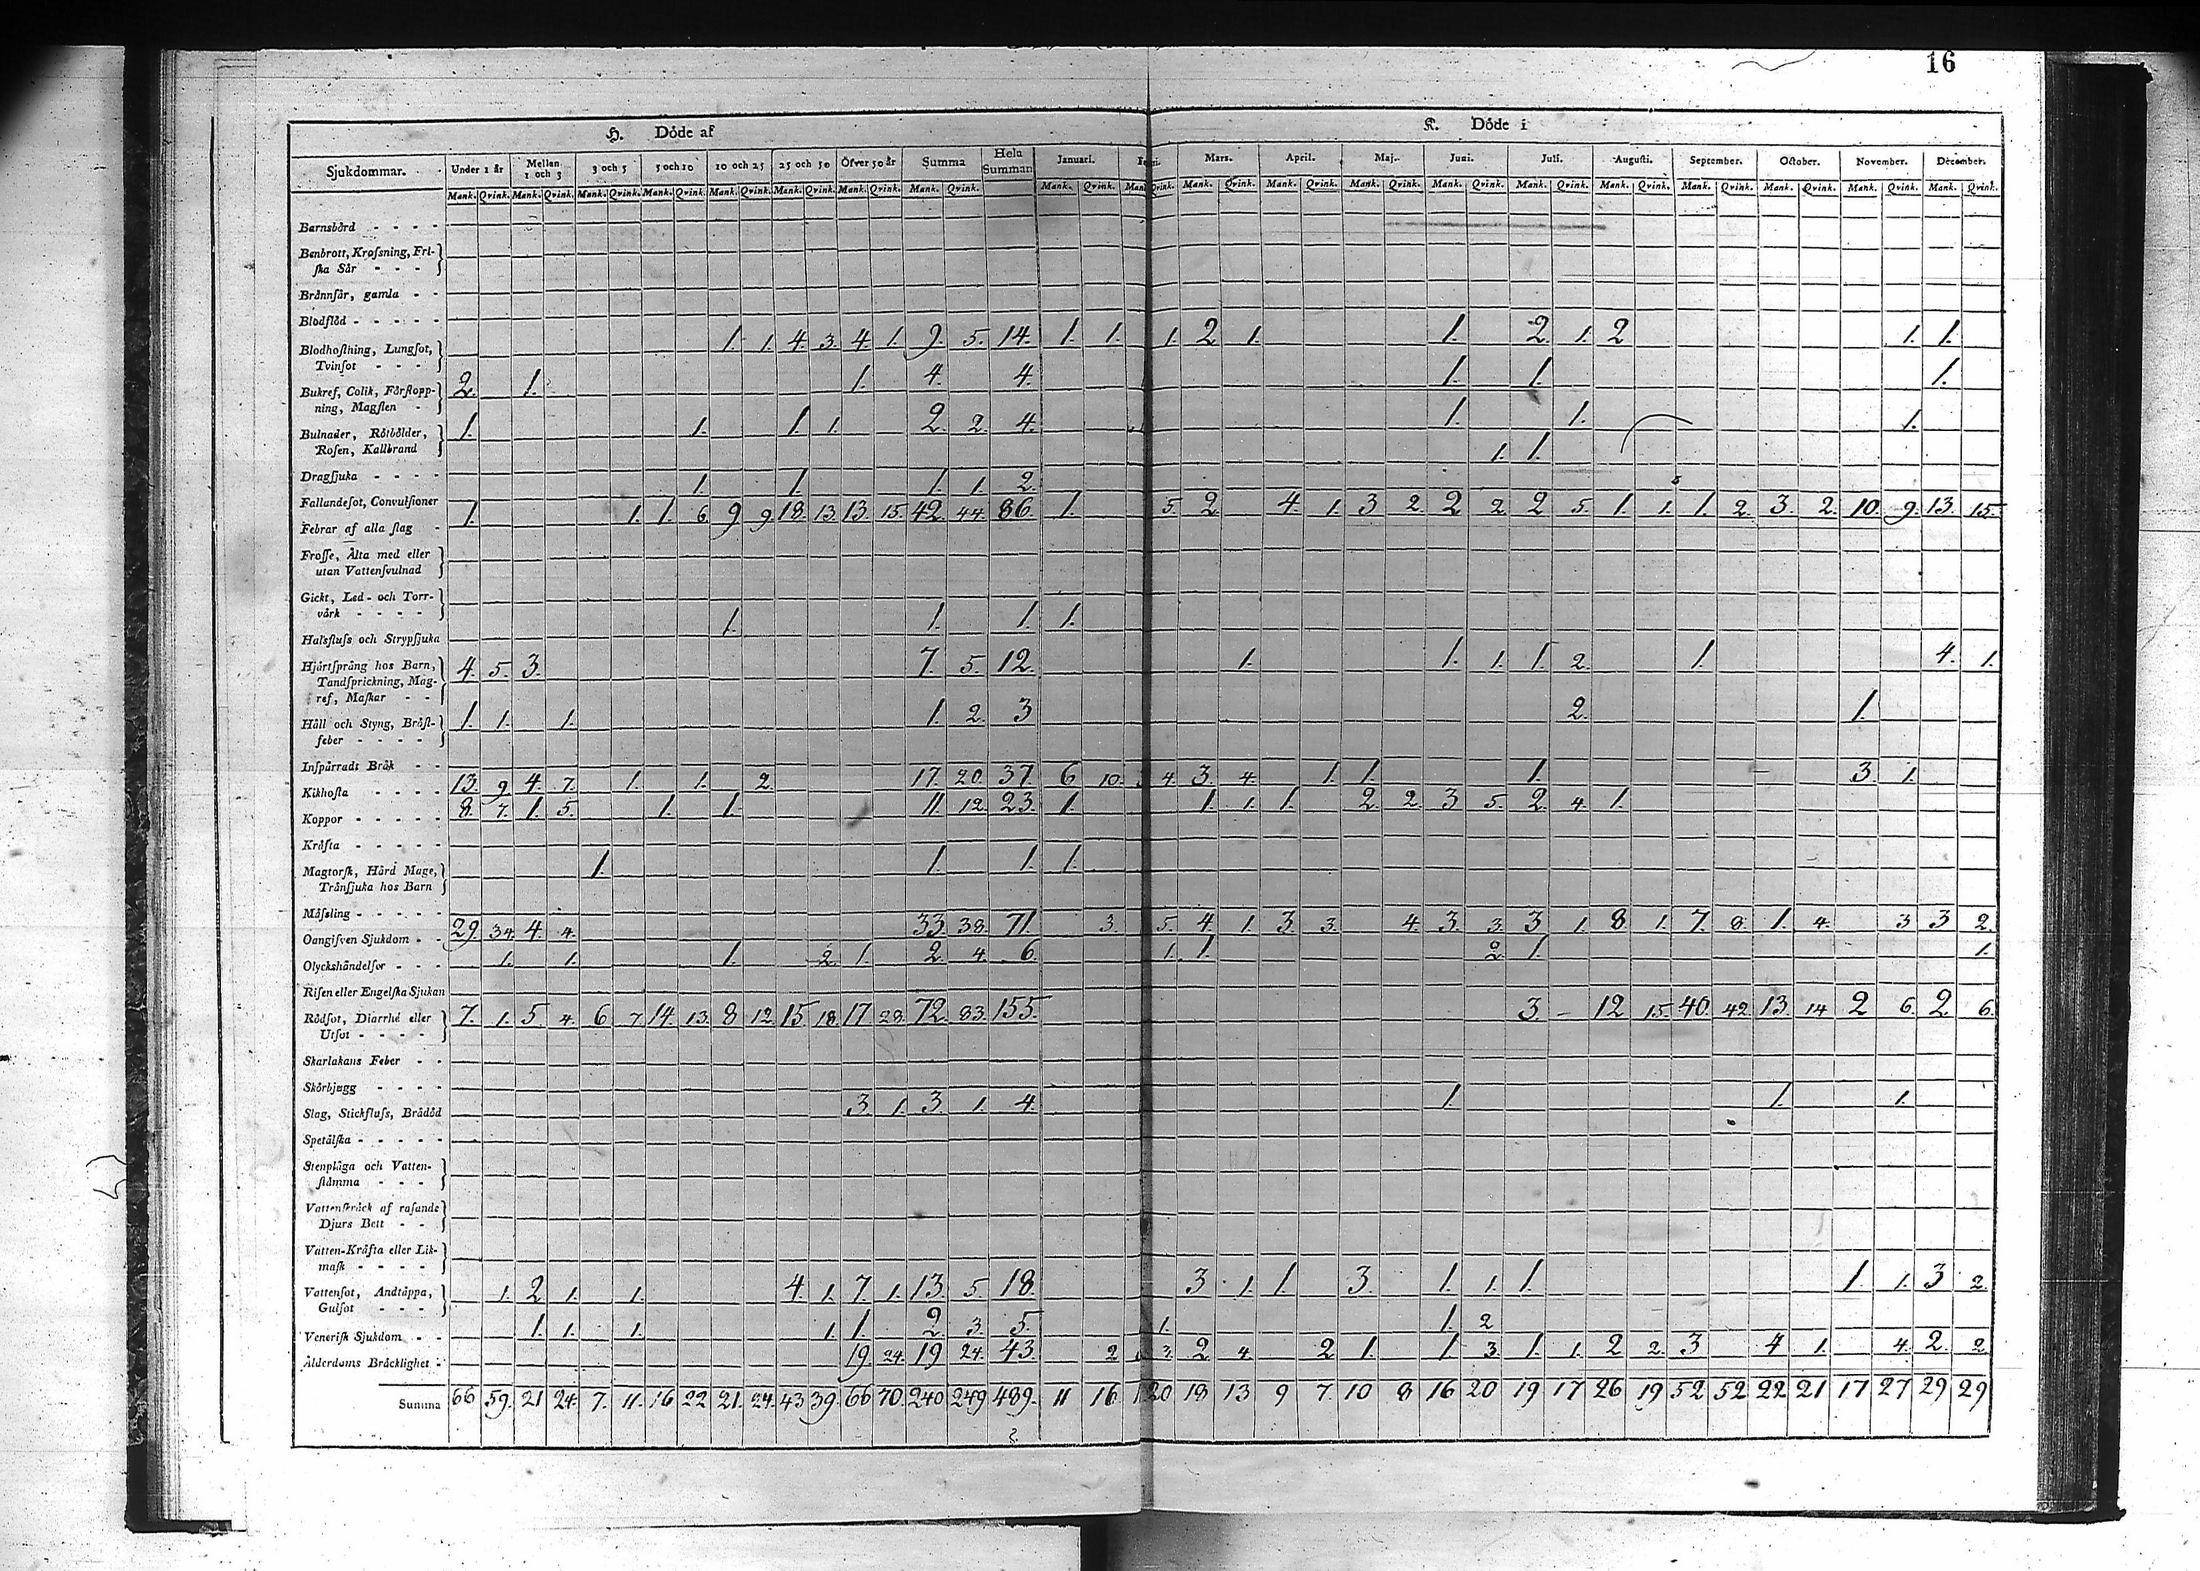 16
H. Döde af K. Döde i
Sjukdommar. Under 1 år Mellan 1 och 3 3 och 5 5 och 10 10 och 25 25 och 50 Öfver 50 år Summa Hela Summan Januari. Mars. April. Maj. Juni. Juli. Augusti. September. October. November. December.
Mank. Qvink. Mank. Qvink. Mank. Qvink. Mank. Qvink. Mank. Qvink. Mank. Qvink. Mank. Qvink. Mank. Qvink. Mank. Qvink. Mank. Qvink. Mank. Qvink. Mank. Qvink. Mank. Qvink. Mank. Qvink. Mank. Qvink. Mank. Qvink. Mank. Qvink. Mank. Qvink. Mank. Qvink. Mank. Qvink.
Barnsbörd
Benbrott, Krosning, Fri-
ska Sår
Brännsår, gamla
Blodflöd
Blodhostning, Lungsot, 1. 1. 4. 3. 4. 1. 9. 5. 14. 1. 1. 1. 2 1. 1. 2. 1. 2 1. 1.
Tvinsot
Bukref, Colik, Förstopp- 2. 1. 1. 4. 4. 1. 1. 1.
ning, Magsten
Bulnader, Rötbölder, 1. 1. 1. 1. 2. 2. 4. 1. 1. 1.
Rosen, Kallbrand
1. 1.
Dragsjuka
Fallandesot, Convulsioner 1. 1. 1. 1. 2.
Febrar af alla slag 1. 1. 1. 6. 9 9. 18. 13. 13. 15. 42. 44. 86. 1. 5. 2. 4. 1. 3 2. 2 2 2 5. 1. 1. 1. 2. 3. 2. 10. 9. 13. 15.
Frosse, Älta med eller
utan Vattensvulnad
Gickt, Led- och Torr-
värk
Halsfluss och Strypsjuka 1. 1. 1. 1.
Hjärtsprång hos Barn, 4. 5. 3. 7. 5. 12. 1. 1. 1. 1. 2. 1. 4. 1.
Tandsprickning, Mag-
ref, Maskar
Håll och Styng, Bröst- 1. 1. 1. 1. 2. 3 2. 1.
feber
Inspärradt Bråk
Kikhosta 13. 9. 4. 7. 1. 1. 2. 17. 20. 37. 6 10. 4. 3. 4. 1. 1. 1. 3. 1.
Koppor 8. 7. 1. 5. 1. 1. 11. 12. 23. 1. 1. 1. 1. 2 2. 3 5. 2. 4. 1.
Kräfta
Magtorsk, Hård Mage, 1. 1. 1. 1.
Tränsjuka hos Barn
Mässling
Oangifven Sjukdom 29. 34. 4. 4. 33. 38. 71. 3. 5. 4. 1. 3. 3. 4. 3. 3. 3 1. 8 1. 7. 8. 1. 4. 3 3 2.
Olyckshändelser 1. 1. 1. 2. 1. 2. 4. 6. 1. 1. 2. 1. 1.
Risen eller Engelska Sjukan
Rödsot, Diarrhé eller 7. 1. 5. 4. 6 7. 14. 13. 8 12. 15. 18. 17 28. 72. 83. 155. 3. – 12 15. 40. 42. 13. 14 2 6. 2. 6.
Utsot
Skarlakans Feber
Skörbjugg
Slag, Stickfluss, Brådöd 3. 1. 3. 1. 4. 1. 1. 1.
Spetälska
Stenplåga och Vatten-
stämma
Vattenskräck af rasande
Djurs Bett
Vatten-Kräfta eller Lik-
mask
Vattensot, Andtäppa, 1. 2. 1. 1. 4. 1. 7. 1. 13. 5. 18. 3. 1. 1. 3. 1. 1. 1. 1. 1. 3 2.
Gulsot
Venerisk Sjukdom 1. 1. 1. 1. 1. 2. 3. 5. 1. 1. 2
Ålderdoms Bräcklighet 19. 24. 19 24. 43. 2 3. 2 4. 2 1. 1 3. 1. 1. 2 2. 3 4 1. 4. 2. 2
Summa 66 59. 21 24. 7. 11. 16 22 21. 24. 43 39. 66 70. 240 249 489. 11 16 20 18 13 9 7. 10 8 16 20 19 17 26 19 52 52 22 21 17 27 29 29